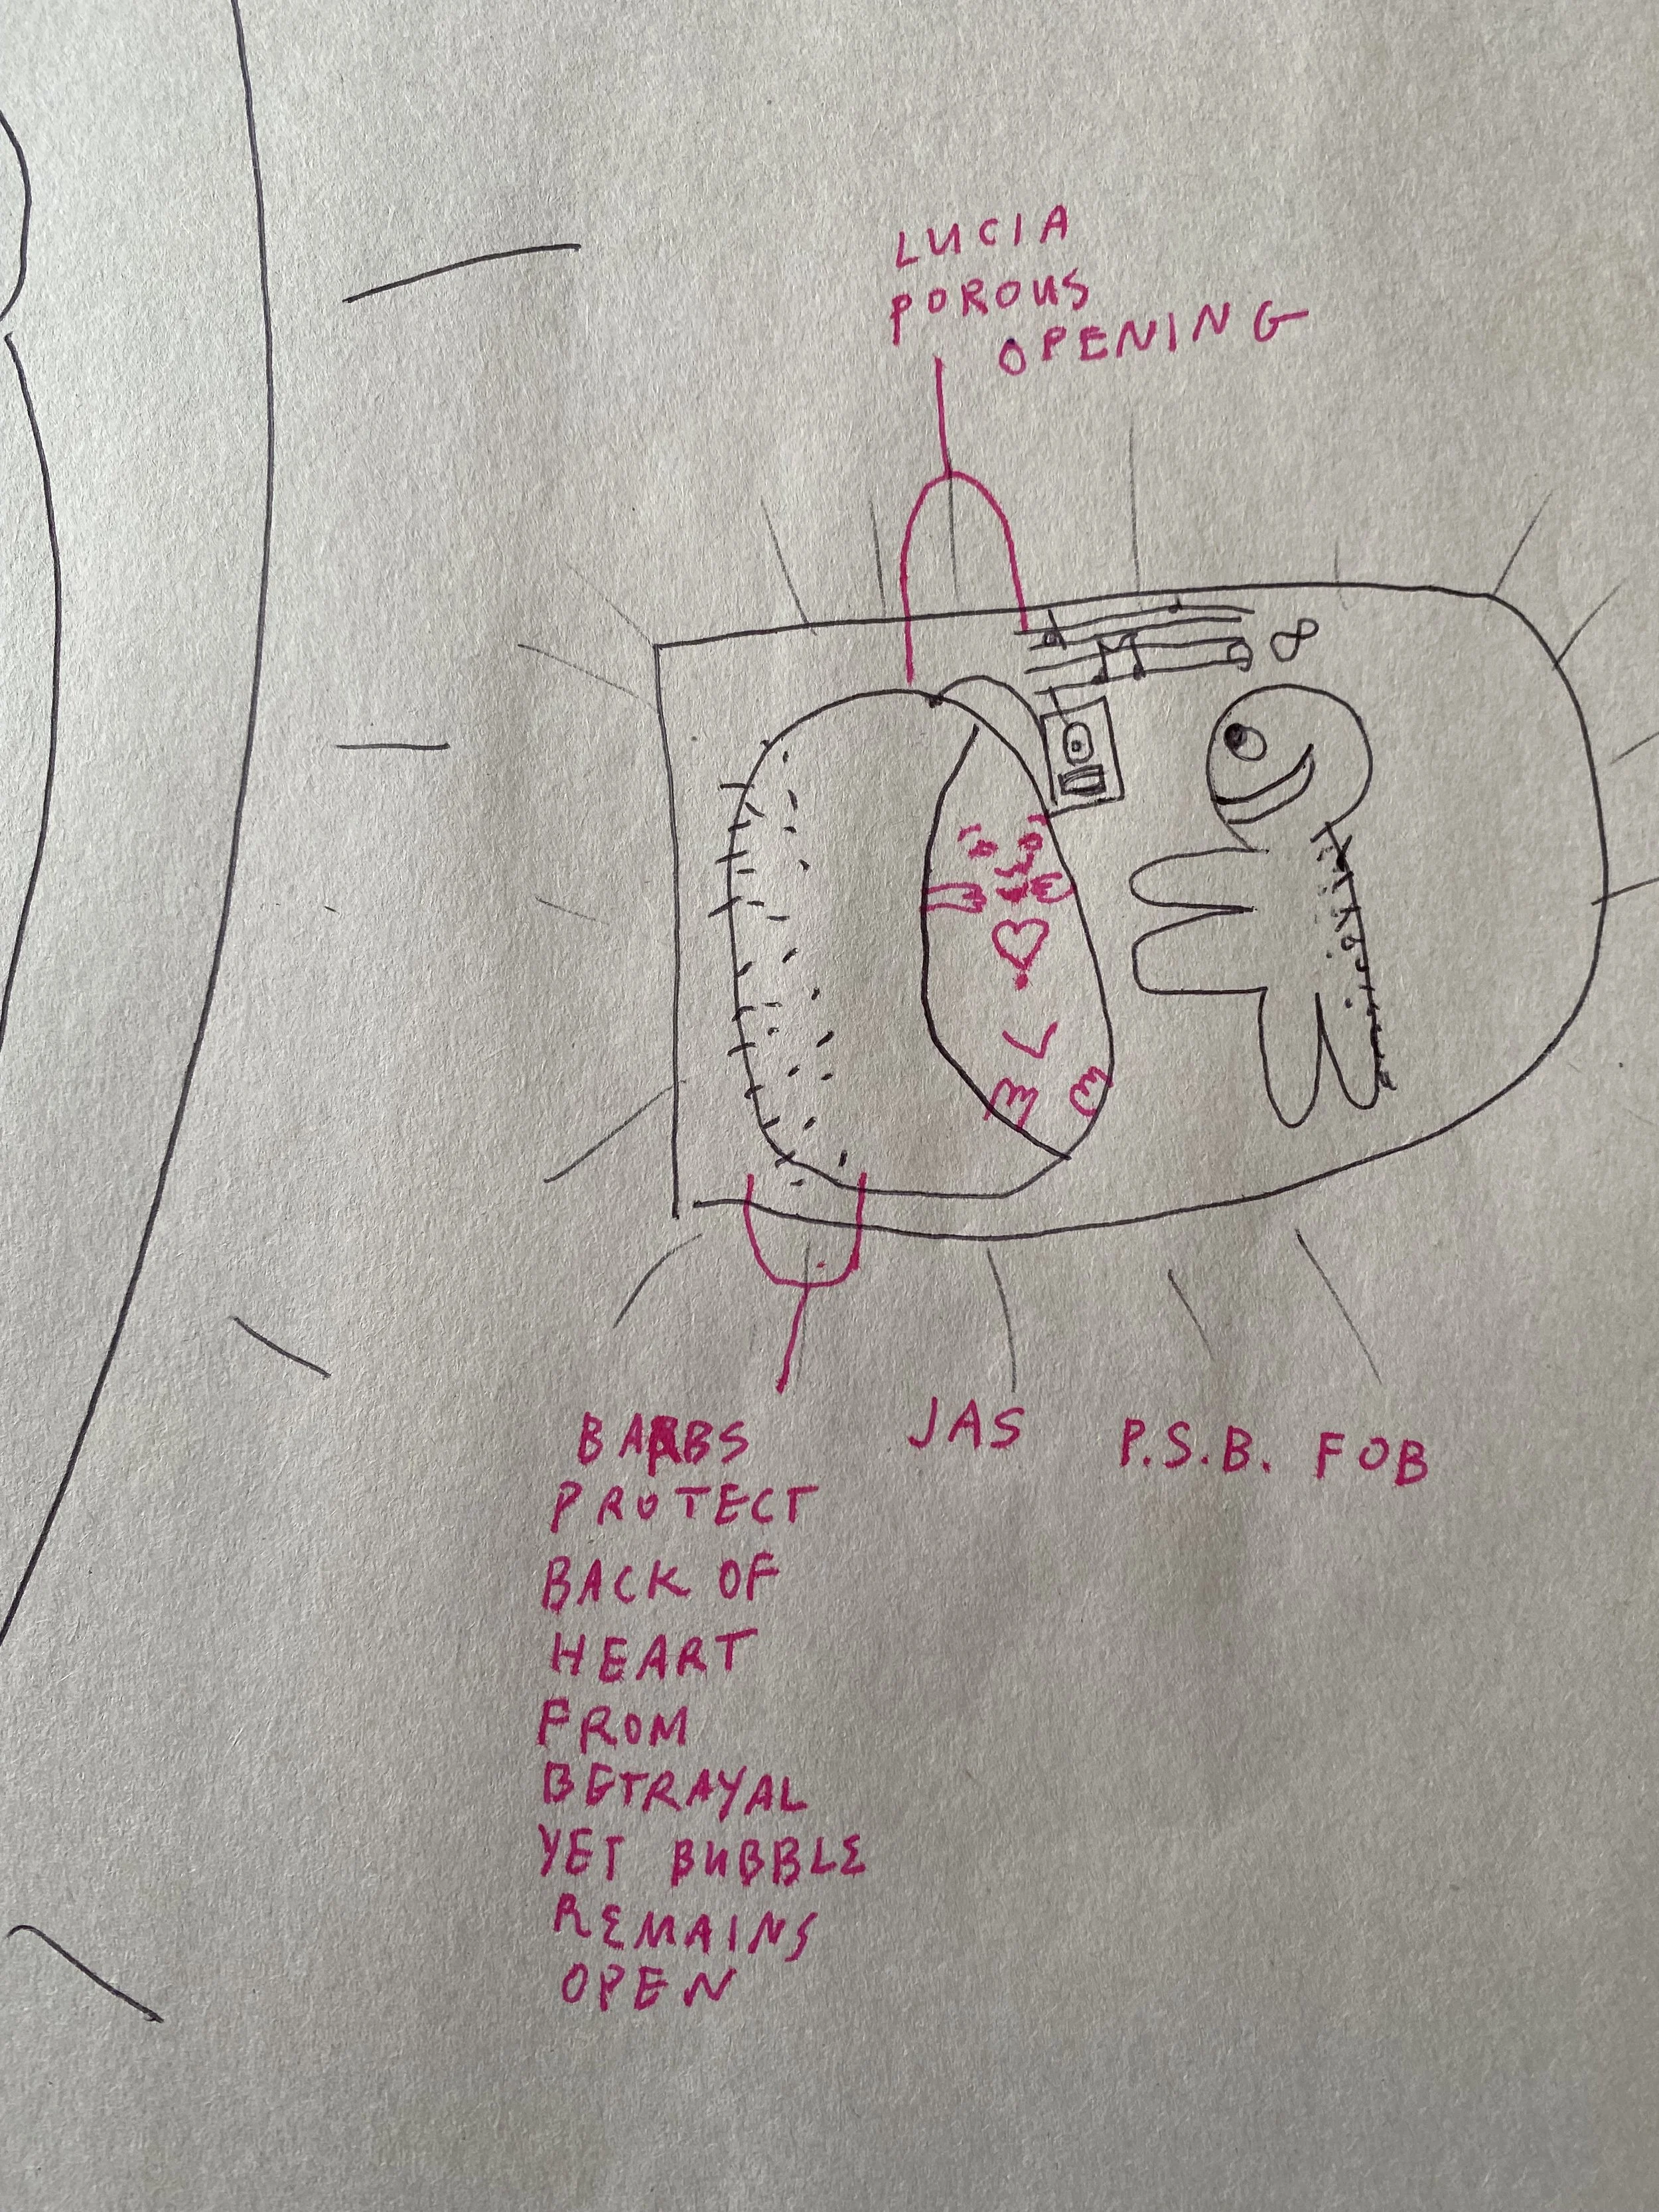 LUCIA
POROUS
OPENING
∞
BARBS
PROTECT
BACK OF
HEART
FROM
BETRAYAL
YET BUBBLE
REMAINS
OPEN
JAS
P.S.B. FOB